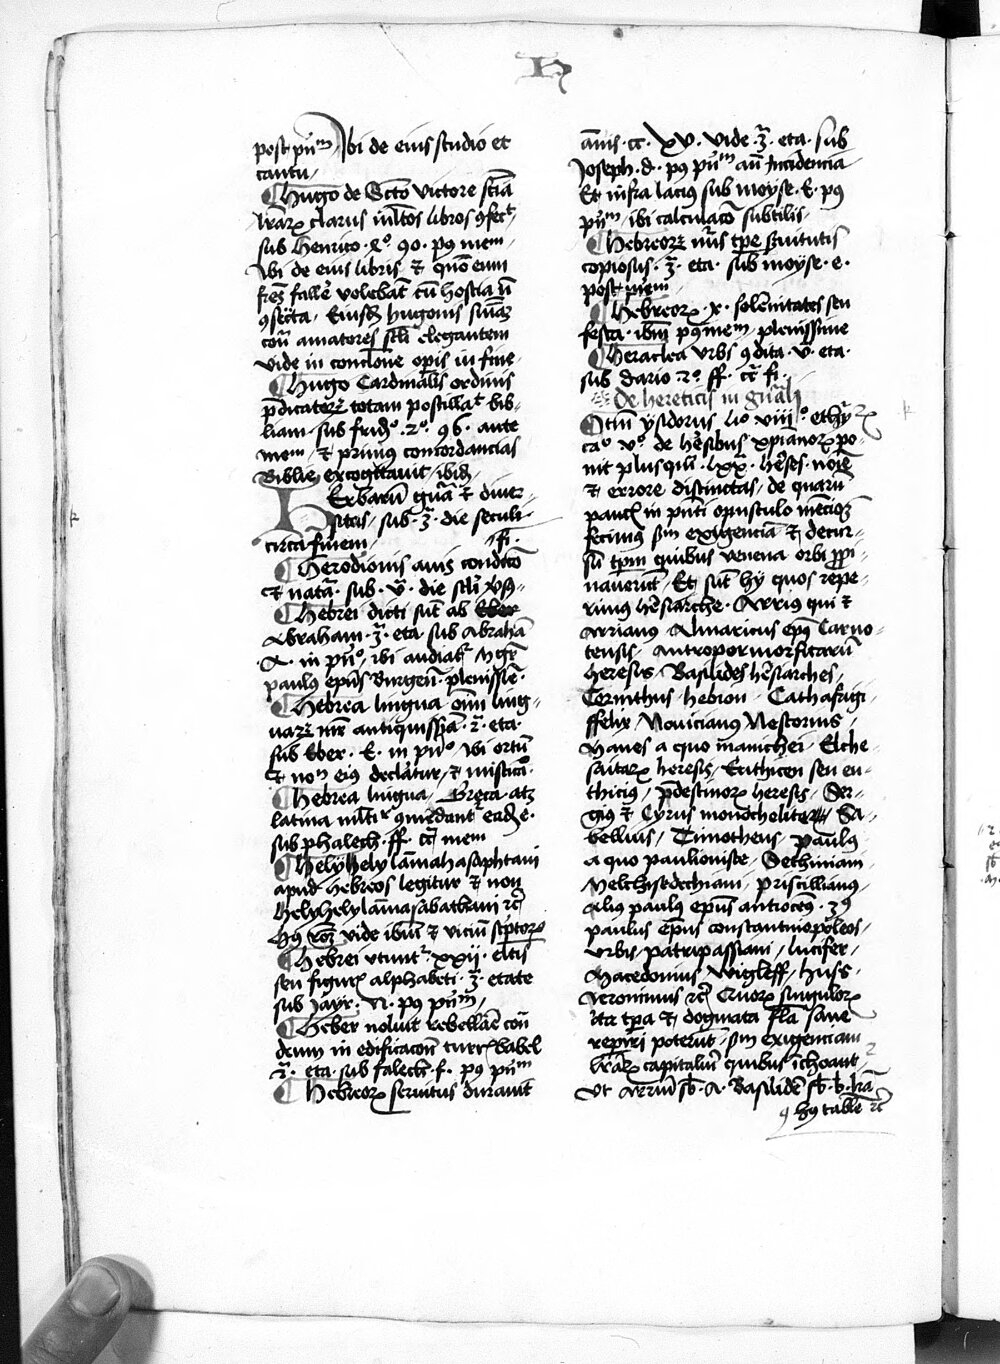 H
post pūm Ubi de eius studio et
cantu
Hugo de Scto victore sciā
lrarꝝ clarus ml̄tos libros ꝯfect
sub Henrico · 4º · 90 · pꝰ mem
Ubi de eius libris ⁊ quō eum
frēs fallē volebāt cū hostia ū
ꝯsecͣta · Eiusdē hugonis
cōū amatores scl̄i elegantem
vide in conclōne opis in fine
Hugo Cardinalis ordinis
p̄dicatorꝝ totam postillaͭ bib-
liam sub fridº · 2º · 96 · ante
mem ⁊ primus concordancias
Biblie excogitauit ibid
Herbarū gnͣa ⁊ diuer-
sitas sub · 3ͣ · die seculi
circa finem · fi ·
Herodionis auis condicō
⁊ natͣa · sub · vͣ · die scl̄i
Hebrei dicti sūt ab Eber
Abraham · 3ͣ · eta · sub abrahā
· A · in pnº ibi audiatͬ mgr̄
paulꝰ ep̄us Burgen̄ · plenissīe
Hebrea lingua om̄ ling-
uarꝝ antiquissīa · 2ͣ · eta ·
sub Eber · E · in pnº ubi ortū
⁊ nom eiꝰ declātur ⁊ misticā
Hebrea lingua Greca atqꝫ
latina ml̄tͥ ꝯueniēdantͬ eadē e ·
sub phalech · ff · cc̄ mem
Hely hely lamah asaphtani
apud hebreos legitur ⁊ non
hely hely lāma sabathani ⁊c̄
Hꝰ vide ibm̄ ⁊ viciū sc̄ptorꝫ
Hebrei vtuntͬ · xxij · eltis
seu figurꝭ alphabeti · 3ͣ · etate
sub Jayr · N · pꝰ pn̄m
Heber noluit rebellāe cōū
deum in edificacōn turrꝭ babel
2ͣ · eta · sub falech · f · pꝰ pn̄m
Hebreorꝝ seruitus durauit
ānis · cc · xv · vide · 3ͣ · eta · sub
Joseph · d · pꝰ pn̄m an̄ Incidencia
Et infra lacius sub moyse · E · pꝰ
pn̄m · ibi calculacō subtilis
Hebreorꝝ nūus tp̄e suitutis
copiosus · 3ͣ · eta · sub moyse · e ·
post pn̄m
Hebreorꝝ · x · solēnitates seu
festa · ibm̄ pꝰ mem plenissime
Heraclea vrbs ꝯdita · v · eta ·
sub dario · 2º · ff · cc̄ · fi ·
De hereticis in gn̄ali
Octūi ysidorus liº viiiº · ethy-
caº vº · de hēsibus xp̄ianorꝝ po-
nit plusqͣ · lxx · hēses · noīe
⁊ errore distinctas de quarū
paucꝭ in pn̄ti opusculo mēcioꝫ
fecimꝰ sm̄ exigenciā ⁊ decur-
sū tp̄m quibus venena orbi ꝓpi-
nauerūt · Et sūt hy quos repe-
rimꝰ hēsiarche · Arrius qui ⁊
arrianꝰ Almaricus ep̄ꝰ Carno-
tensis · antropormorfitarū
heresis · Basilides hēsiarches
Cerinthus hebion · Cathafrigi
ffelix · Nouicianꝰ Nestorius
Manes a quo manichei · Elche-
saitarꝝ heresis · Euthicen seu eu-
thiciꝰ p̄destinorꝝ heresis · Ser-
giꝰ ⁊ Cyrus monothelitaꝝ · Sa-
bellius / Timotheus paulꝰ
a quo paulioniste · Sethiniani
Melchisedechiani / priscillianꝰ
Alius paulꝰ ep̄us antiocēꝰ · 3ꝰ
paulus ep̄us constantinopoleos
vrbis · patripassiani / lucifer
Macedonius wigleff / huss
Jeronimus ⁊c̄ Quorꝝ singulorꝝ
tp̄a ⁊ dogmata sane
repiri poterūt sm̄ exigenciam
lrārꝝ capitaliū quibus īchoantͬ
Vt arriū sb̄ · A · Basilidē sb̄ · b · hā
ꝯ hꝰ table ⁊c̄